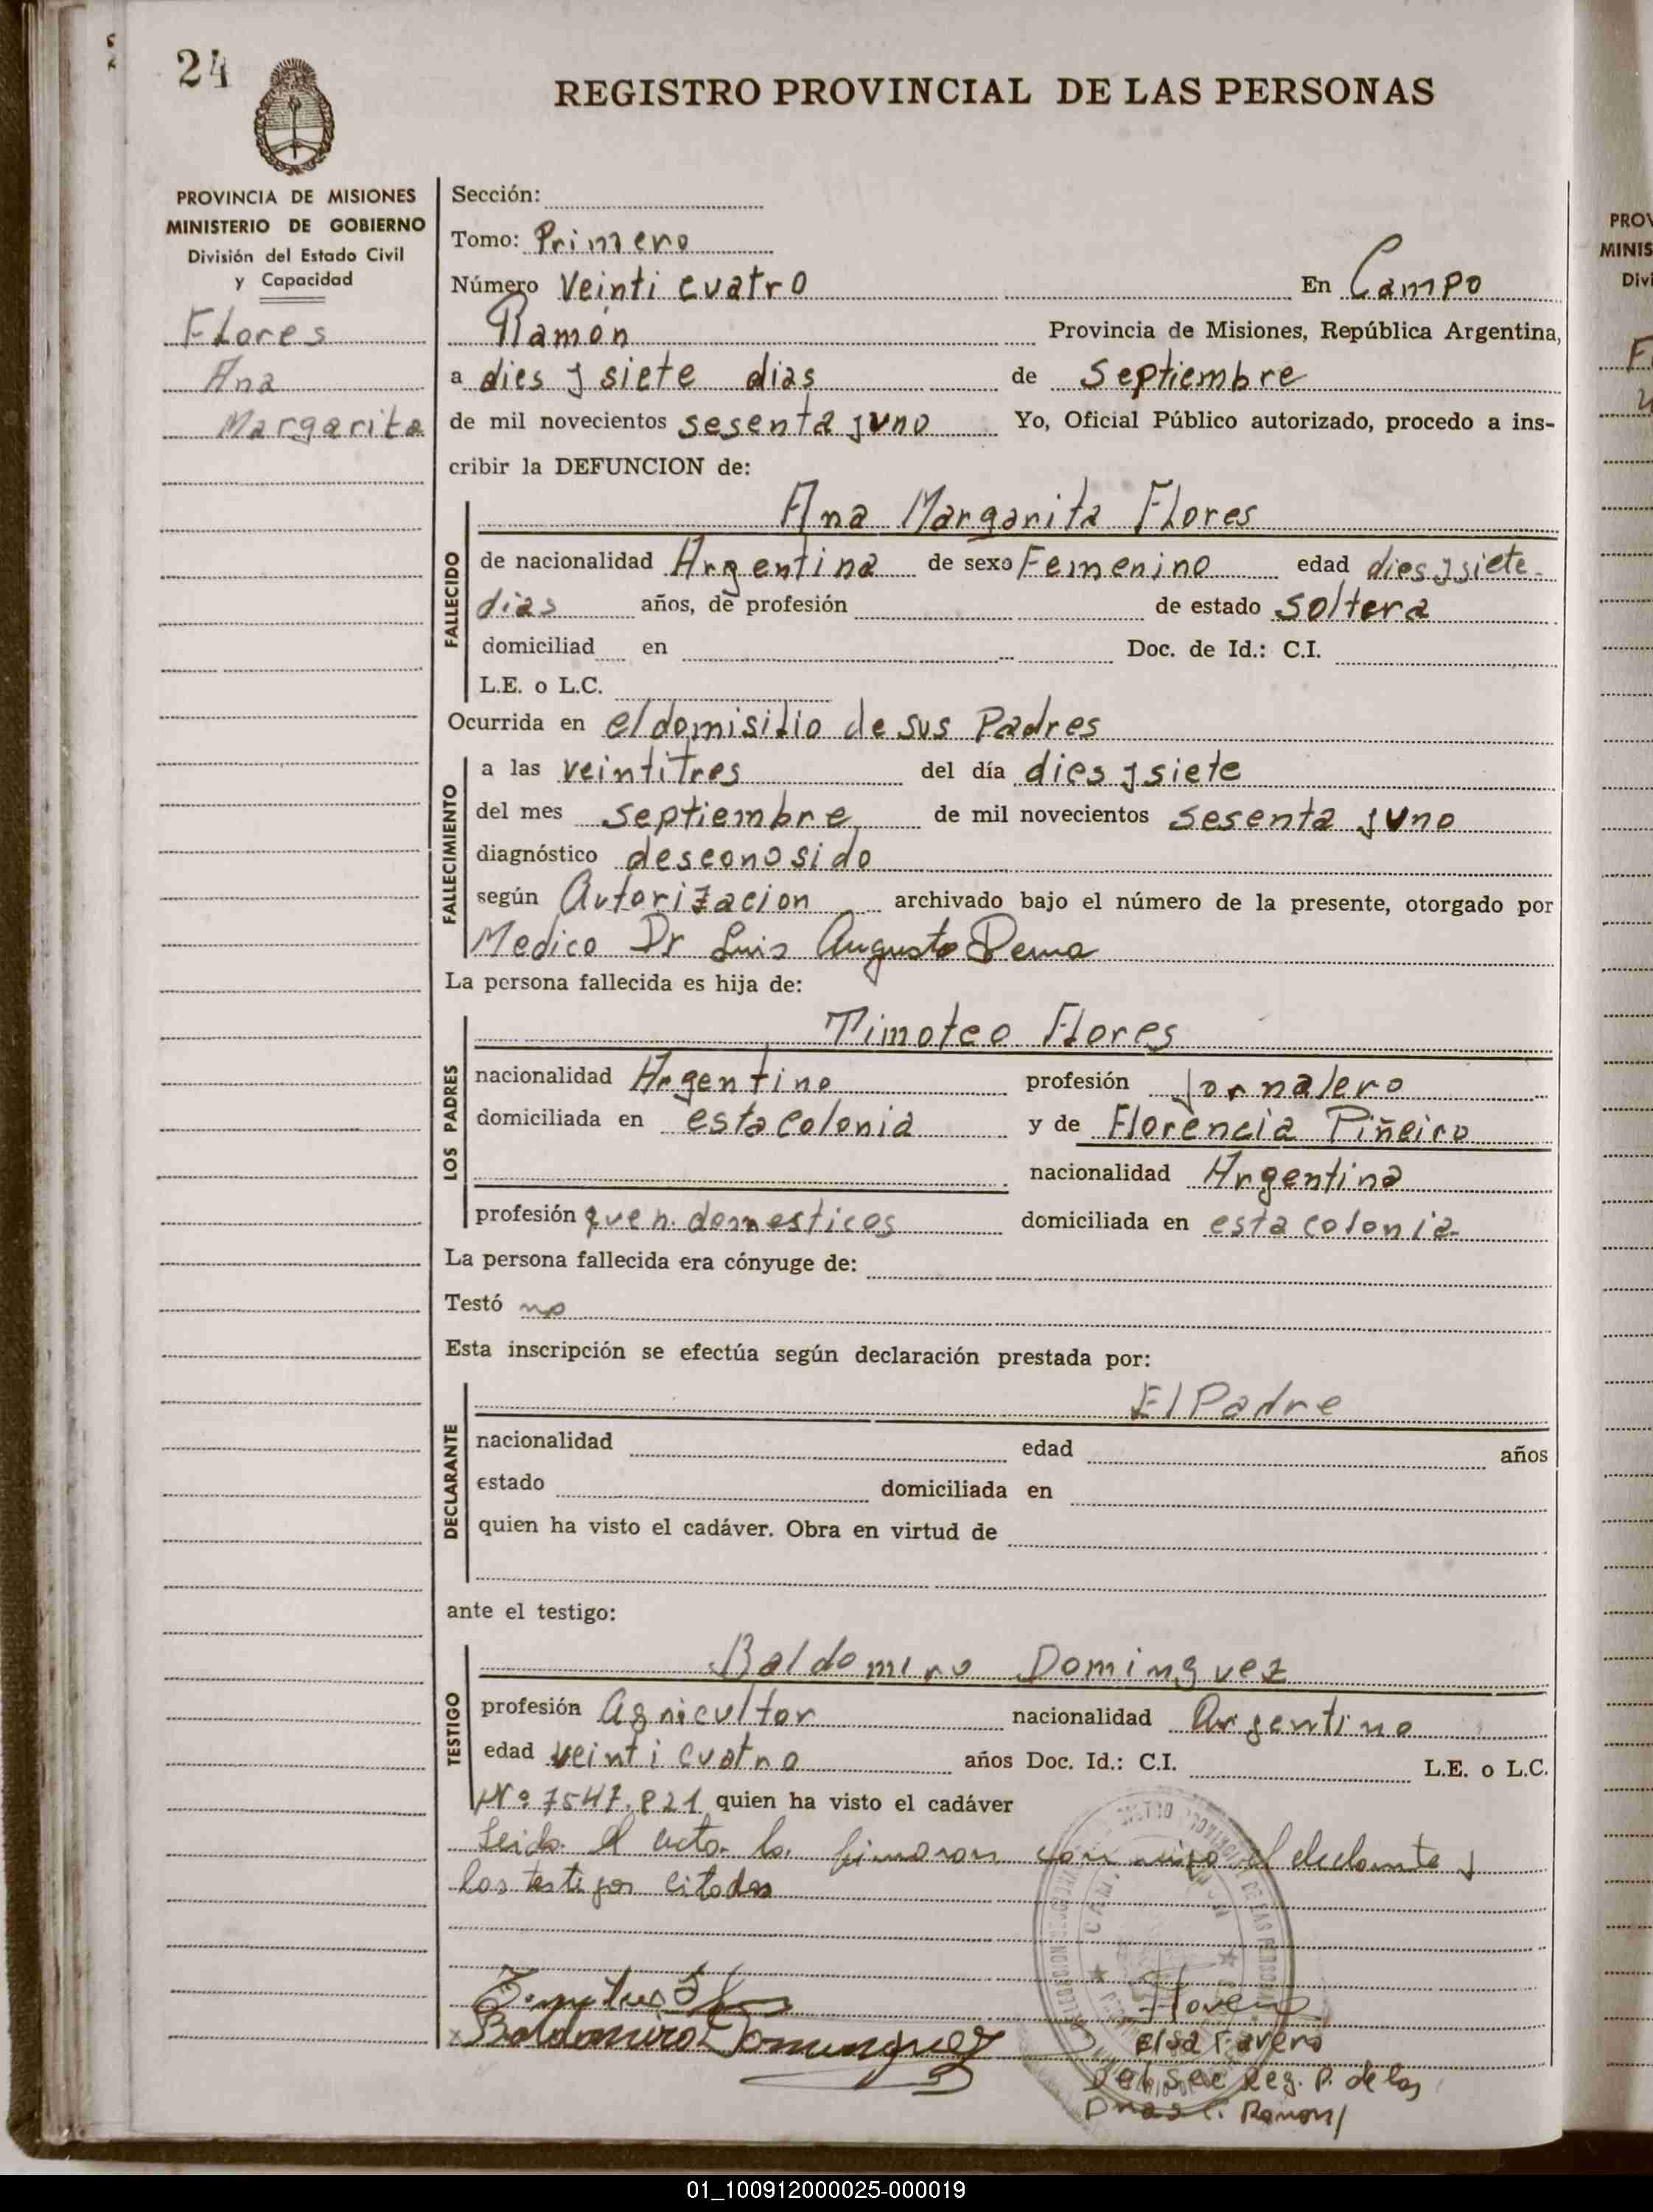 24
REGISTRO PROVINCIAL DE LAS PERSONAS
PROVINCIA DE MISIONES
MINISTERIO DE GOBIERNO
División del Estado Civil
y Capacidad
Flores
Ana
Margarita
Sección:
Tomo: Primero
Número Veinti cuatro En Campo
Ramón Provincia de Misiones, República Argentina,
a dies y siete dias de Septiembre
de mil novecientos sesenta y uno Yo, Oficial Público autorizado, procedo a ins-
cribir la DEFUNCION de:
Ana Margarita Flores
FALLECIDO
de nacionalidad Argentina de sexo Femenino edad dies y siete
dias años, de profesión de estado Soltera
domiciliad en Doc. de Id.: C.I.
L.E. o L.C.
Ocurrida en el domisilio de sus Padres
FALLECIMIENTO
a las veintitres del día dies y siete
del mes septiembre de mil novecientos sesenta y uno
diagnóstico desconosido
según Autorizacion archivado bajo el número de la presente, otorgado por
Medico Dr Luis Augusto
La persona fallecida es hija de:
Timoteo Flores
LOS PADRES
nacionalidad Argentino profesión Jornalero
domiciliada en esta colonia y de Florencia Piñeiro
nacionalidad Argentina
profesión queh. domesticos domiciliada en esta colonia
La persona fallecida era cónyuge de:
Testó no
Esta inscripción se efectúa según declaración prestada por:
El Padre
DECLARANTE
nacionalidad edad años
estado domiciliada en
quien ha visto el cadáver. Obra en virtud de
ante el testigo:
Baldomero Dominguez
TESTIGO
profesión Agricultor nacionalidad Argentino
edad veinti cuatro años Doc. Id.: C.I. L.E. o L.C.
Nº 7547.821 quien ha visto el cadáver
Leida el acta la firmaron conmigo el declarante y
los testigos citados
Baldomero Dominguez
Elsa Favero
Del Sec Reg. P. de las
Pnas C. Ramon
PROV
MINIS
Divi
01_100912000025-000019